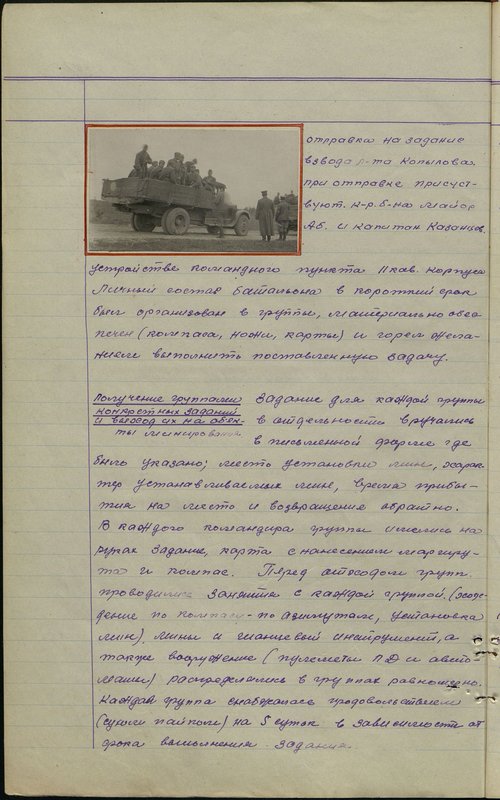 отправка на задание
взвода л-та Копылова.
при отправке присуст-
вуют. к-р. б-на Майор
АБ. и капитан Казанцев.
устройстве командного пункта II кав. корпуса
Личный состав батальона в короткий срок
был организован в группы, материально обес-
печен (компаса, ножи, карты) и горел жела-
нием выполнить поставленную задачу.
Получение группами
конкретных заданий
и вывод их на объек-
ты минирования
Задание для каждой группы
в отдельности вручались
в письменной форме где
было указано; место установки мин, харак-
тер устанавливаемых мин, время прибы-
тия на место и возвращение обратно.
В каждого командира группы имелись на
руках задание, карта с нанесением маршру-
та и компас. Перед отходом групп.
проводились занятия с каждой группой. (хож-
дение по компасу - по азимутам, установка
мин) мины и шанцевый инструмент, а
также вооружение (пулеметы П Д и авто-
маты) распределялись в группах равномерно.
Каждая группа снабжалась продовольствием
(сухим пайком) на 5 суток в зависимости от
срока выполнения задания